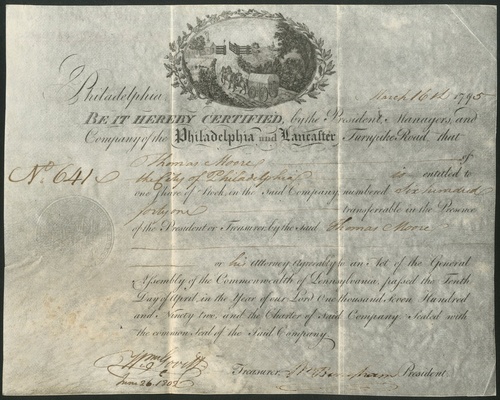 Philadelphia March 16th 1795
BE IT HEREBY CERTIFIED, by the President Managers, and
Company of the Philadelphia and Lancaster Turnpike Road, that
Thomas Moore of
No. 641 the City of Philadelphia is entitled to
one Share of Stock, in the Said Company, numbered Six hundred
forty one transferable in the Presence
of the President or Treasurer, by the Said Thomas Moore
or his Attorney Agreeably to an Act of the General
Assembly of the Commonwealth of Pennsylvania, passed the Ninth
Day of April, in the Year of our Lord One thousand Seven Hundred
and Ninety two, and the Charter of Said Company. Sealed with
the common Seal of the Said Company.
Treasurer. Wm Bingham President.